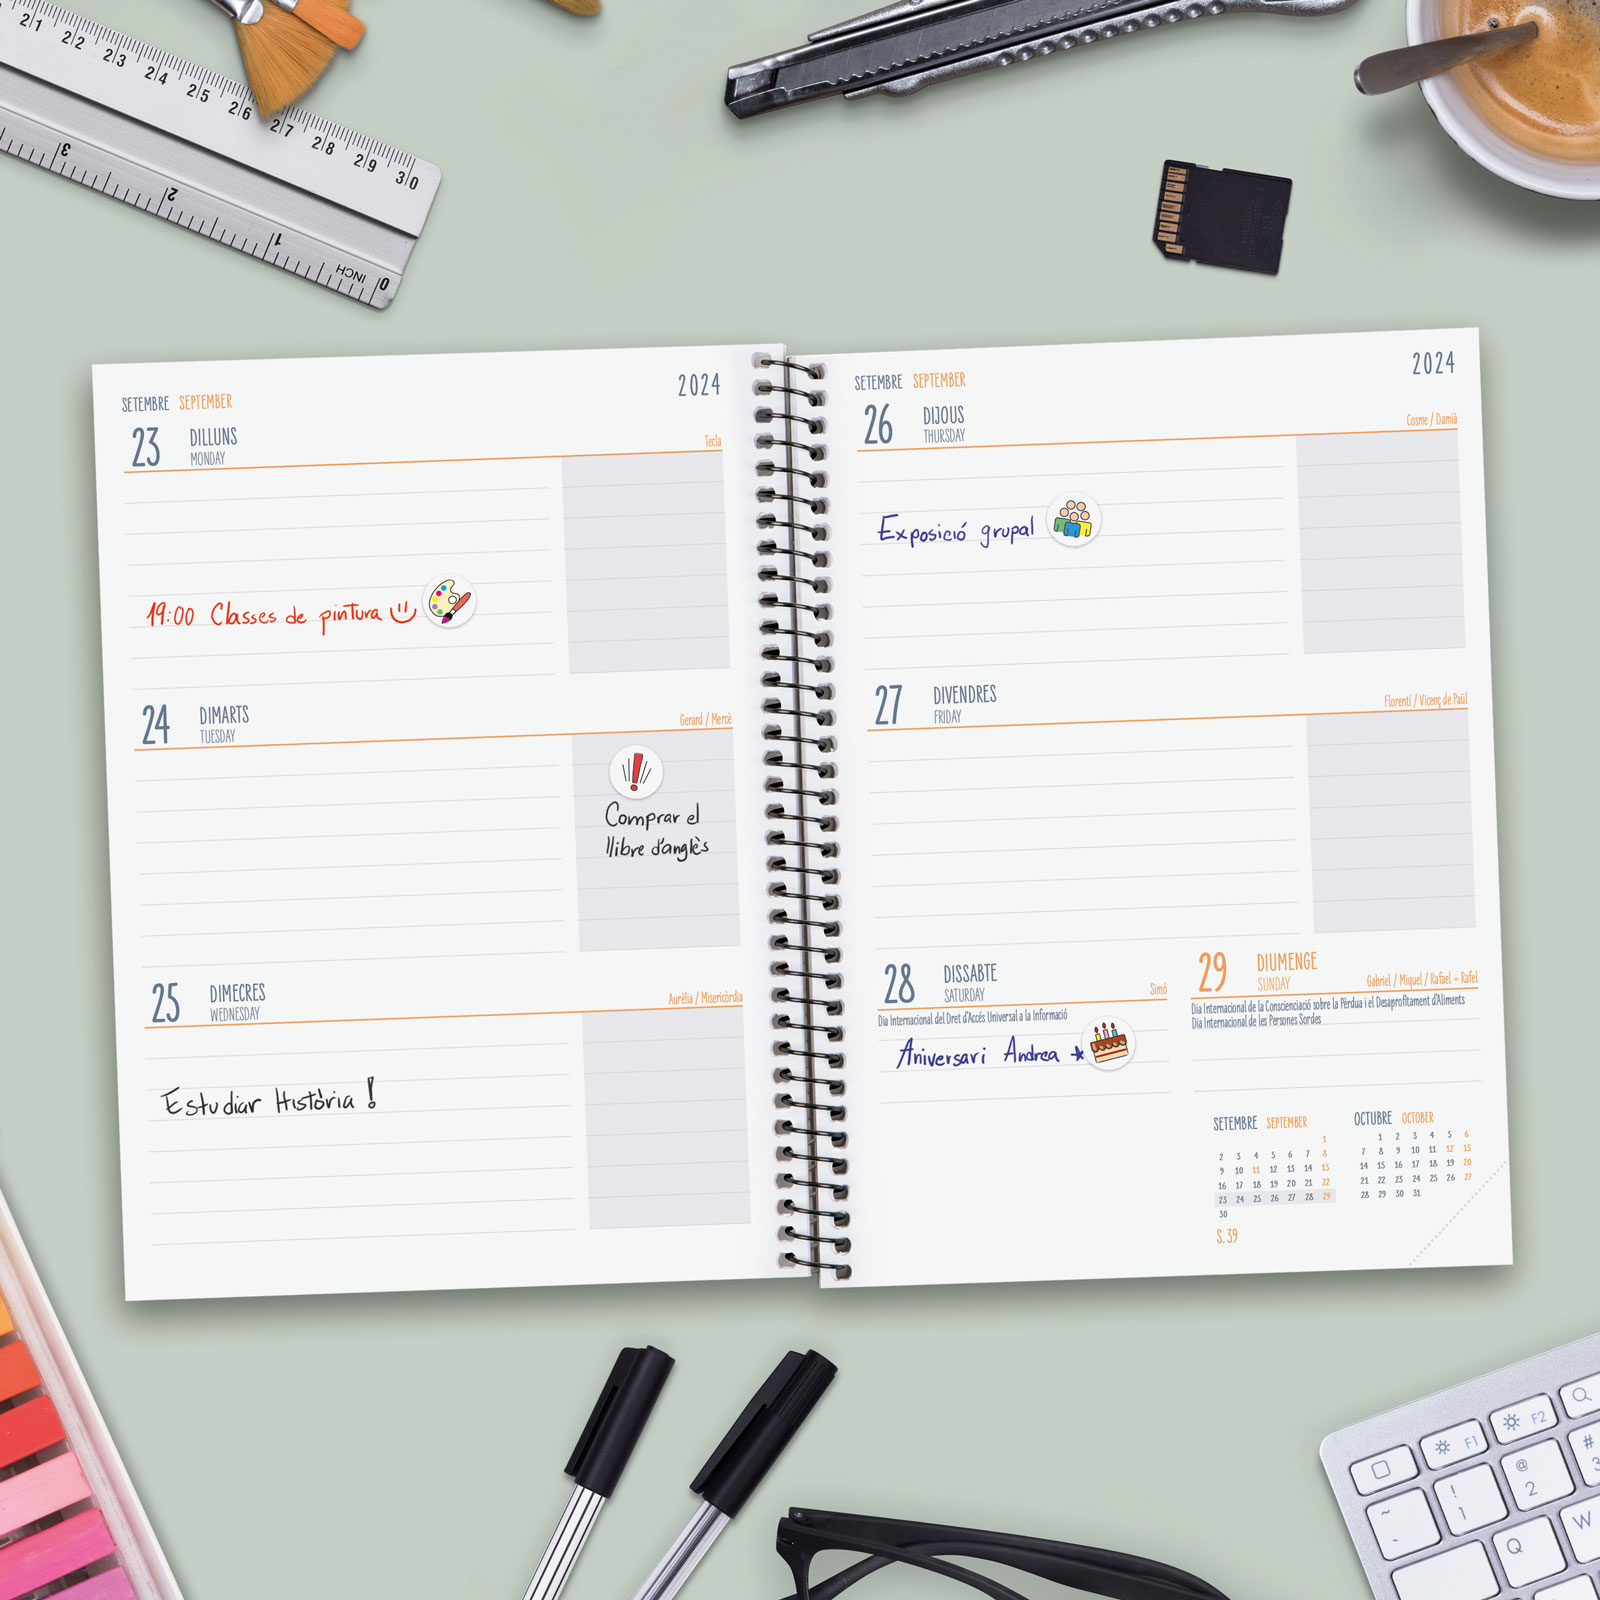 21 22 23 24 25 26 27 28 29 30
3 2 1 0
INCH
SETEMBRE SEPTEMBER 2024
23 DILLUNS
MONDAY
Tecla
19:00 Classes de pintura
24 DIMARTS
TUESDAY
Gerard / Mercè
Comprar el
llibre d'anglès
25 DIMECRES
WEDNESDAY
Aurèlia / Misericòrdia
Estudiar Història !
SETEMBRE SEPTEMBER 2024
26 DIJOUS
THURSDAY
Cosme / Damià
Exposició grupal
27 DIVENDRES
FRIDAY
Florentí / Vicenç de Paül
28 DISSABTE
SATURDAY
Simó
Dia Internacional del Dret d'Accés Universal a la Informació
Aniversari Andrea
29 DIUMENGE
SUNDAY
Gabriel / Miquel / Rafael - Rafel
Dia Internacional de la Conscienciació sobre la Pèrdua i el Desaprofitament d'Aliments
Dia Internacional de les Persones Sordes
SETEMBRE SEPTEMBER
1
2 3 4 5 6 7 8
9 10 11 12 13 14 15
16 17 18 19 20 21 22
23 24 25 26 27 28 29
30
S. 39
OCTUBRE OCTOBER
1 2 3 4 5 6
7 8 9 10 11 12 13
14 15 16 17 18 19 20
21 22 23 24 25 26 27
28 29 30 31
F1 F2
~ ! 1 @ 2 # 3
Q W